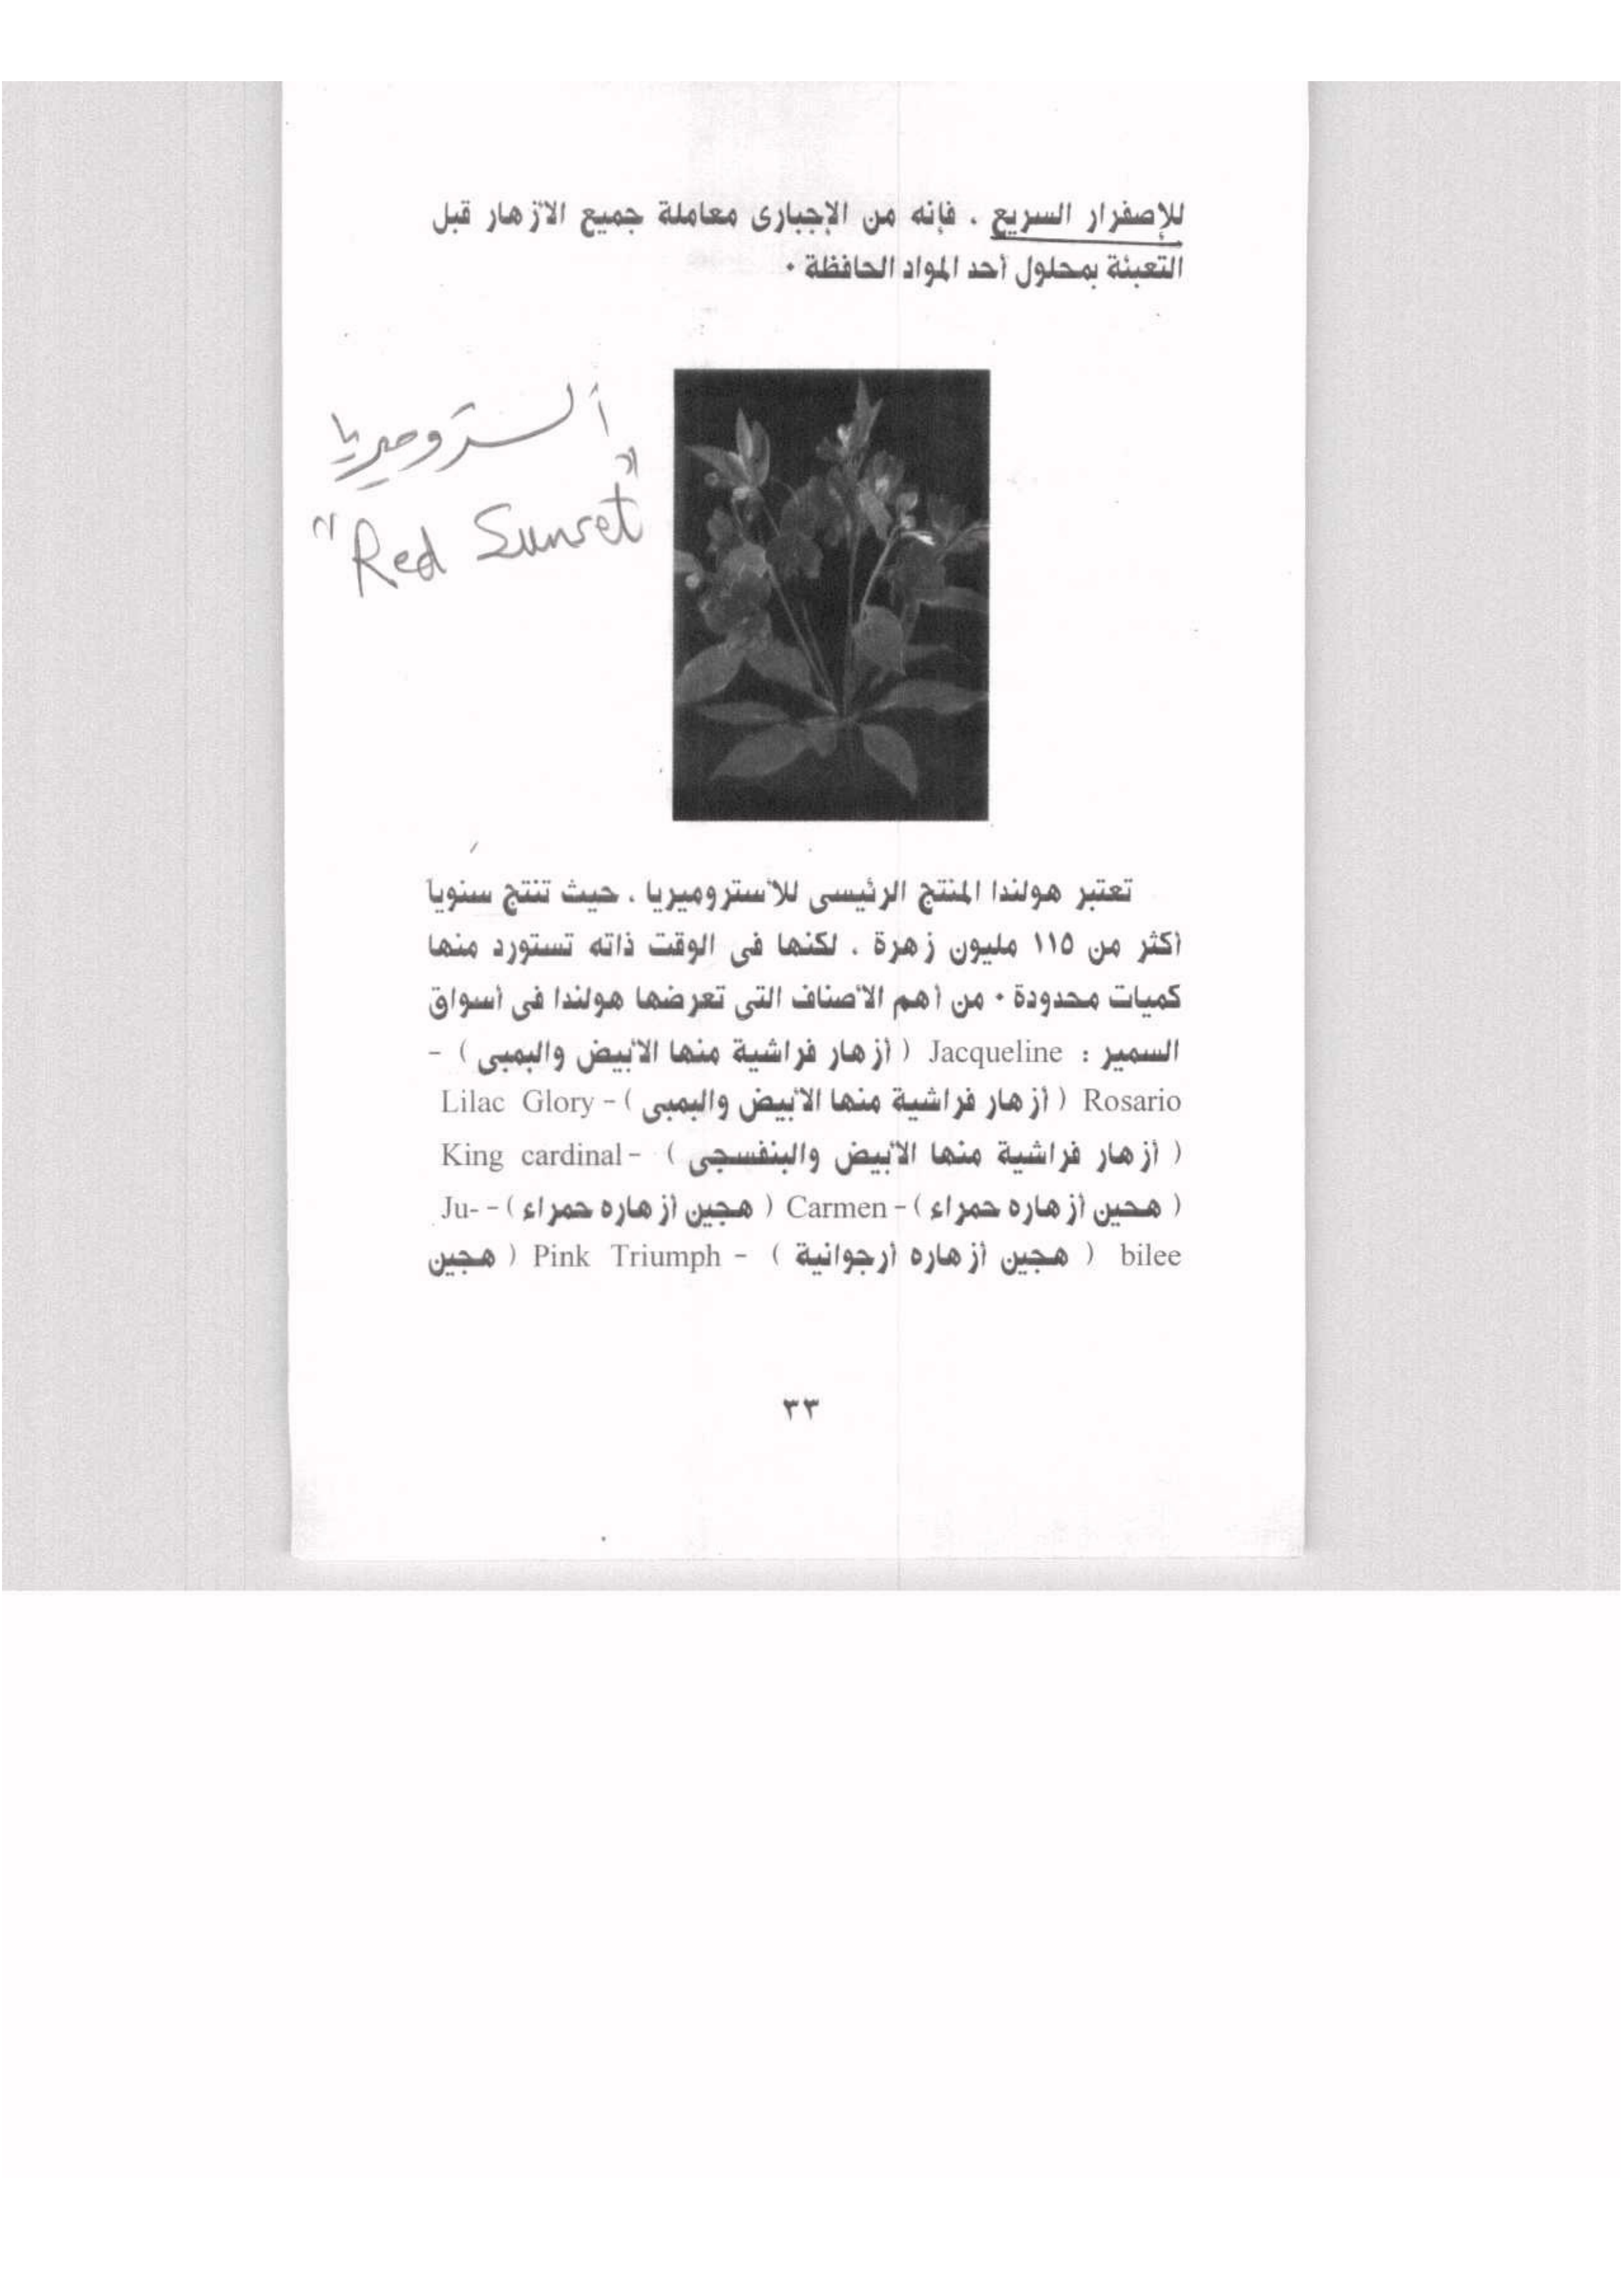 للإصفرار السريع . فإنه من الإجبارى معاملة جميع الأزهار قبل
التعبئة بمحلول أحد المواد الحافظة .
ألستروميريا
"Red Sunset"
تعتبر هولندا المنتج الرئيسى للأستروميريا . حيث تنتج سنوياً
أكثر من ١١٥ مليون زهرة . لكنها فى الوقت ذاته تستورد منها
كميات محدودة . من أهم الأصناف التى تعرضها هولندا فى أسواق
السمير : Jacqueline ( أزهار فراشية منها الأبيض والبمبى ) -
Rosario ( أزهار فراشية منها الأبيض والبمبى ) - Lilac Glory
( أزهار فراشية منها الأبيض والبنفسجى ) - King cardinal
( هجين أزهاره حمراء ) - Carmen ( هجين أزهاره حمراء ) - Ju-
bilee ( هجين أزهاره أرجوانية ) - Pink Triumph ( هجين
٣٣